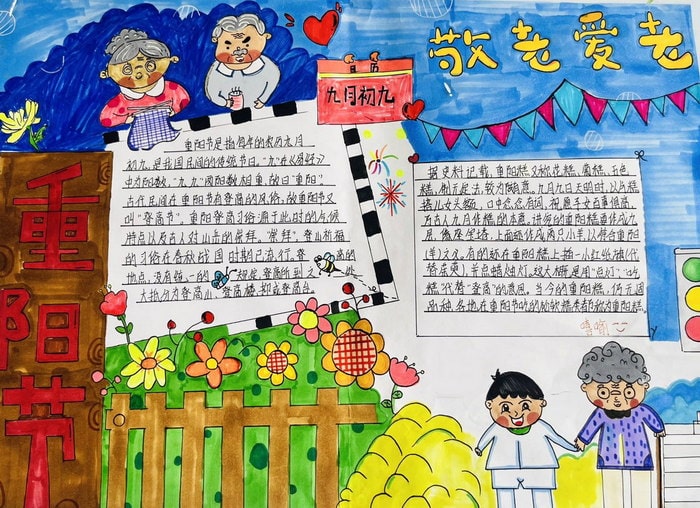 敬老爱老
日历
九月初九
重阳节
重阳节是指每年的农历九月
初九,是我国民间的传统节日。"九"在《易经》
中为阳数,"九九"两阳数相重,故曰"重阳"。
古代民间在重阳节有登高的风俗,故重阳节又
叫"登高节"。重阳登高习俗源于此时的气候
特点以及古人对山岳的崇拜。"崇拜",登山祈福
的习俗在春秋战国时期已流行。登高的
地点,没有统一的规定,登高所到之
大抵分为登高山、登高楼抑或登高台。
据史料记载,重阳糕又称花糕、菊糕、五色
糕,制无定法,较为随意。九月九日天明时,以片糕
搭儿女头额,口中念念有词,祝愿子女百事俱高,
乃古人九月作糕的本意。讲究的重阳糕要作成九
层,像座宝塔,上面还作成两只小羊,以符合重阳
(羊)之义。有的还在重阳糕上插一小红纸旗(代
替茱萸),并点蜡烛灯。这大概是用"点灯"、"吃
糕"代替"登高"的意思。当今的重阳糕,仍无固
定品种,各地在重阳节吃的松软糕类都称为重阳糕。